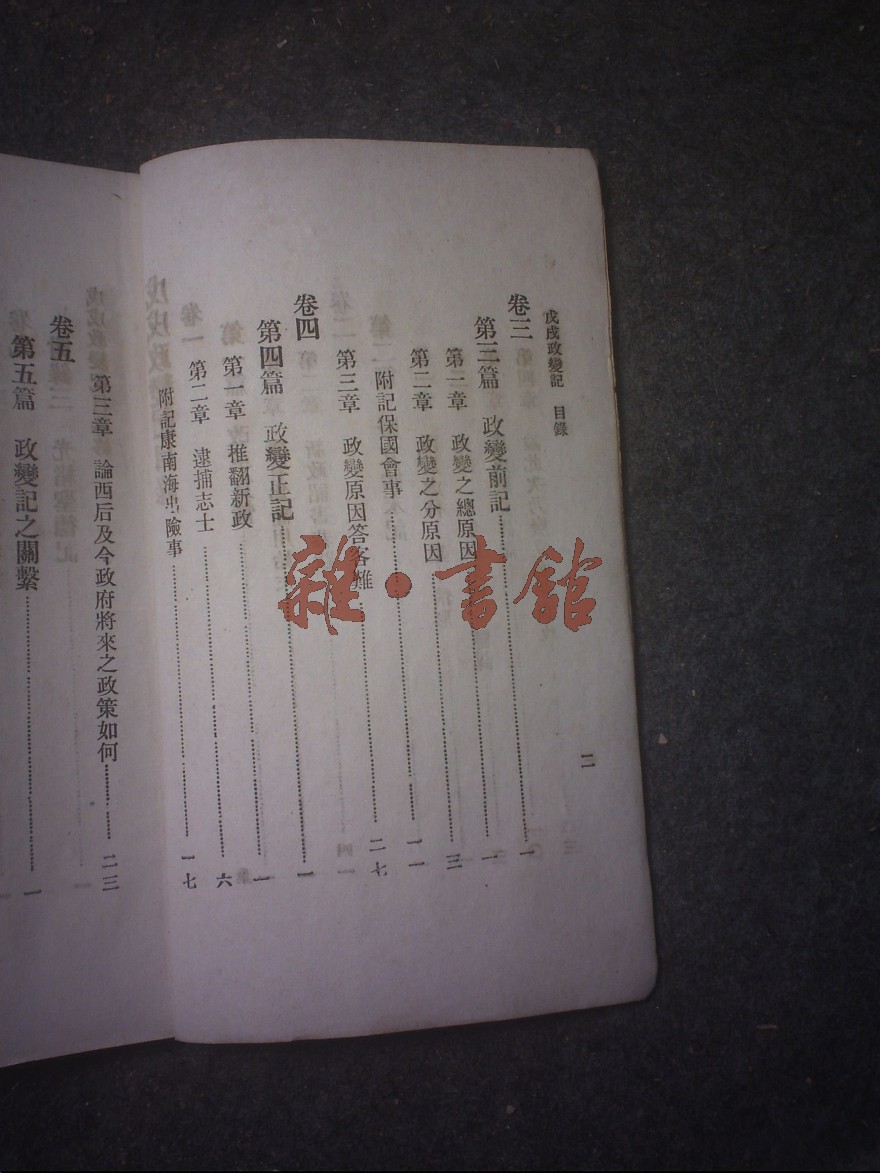 戊戌政變記　目錄　二
卷三
第三篇　政變前記……一
第一章　政變之總原因……一
第二章　政變之分原因……三
附記保國會事……一一
第三章　政變原因答客難……二七
卷四
第四篇　政變正記……一
第一章　推翻新政……一
第二章　逮捕志士……六
附記康南海出險事……一七
第三章　論西后及今政府將來之政策如何……二三
卷五
第五篇　政變記之關繫……一
雜·書館